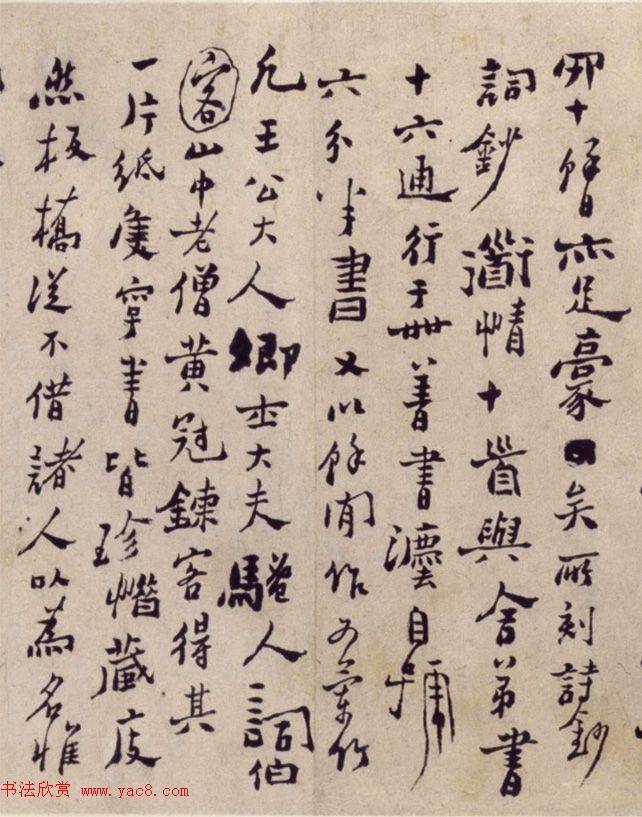 四十餘日亦足豪矣所刻詩鈔
詞鈔道情十首與舍弟書
十六通行于世善書法自號
六分半書又以餘閒作為蘭竹
凡王公大人卿士大夫騷人詞伯
客山中老僧黃冠鍊客得其
一片紙隻字書皆珍惜藏庋
然板橋從不借諸人以為名惟
书法欣赏 www.yac8.com